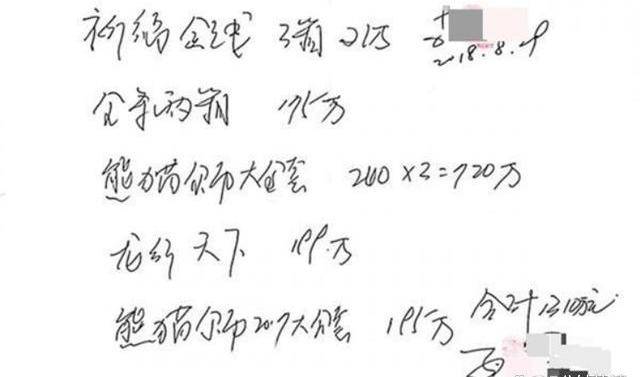 祈福金钱 3箱 21万
2018.8.29
两箱 175万
熊猫金币大全套 240×3=720万
龙行天下 199万
熊猫金币2017大全套 195万 合计1310万元